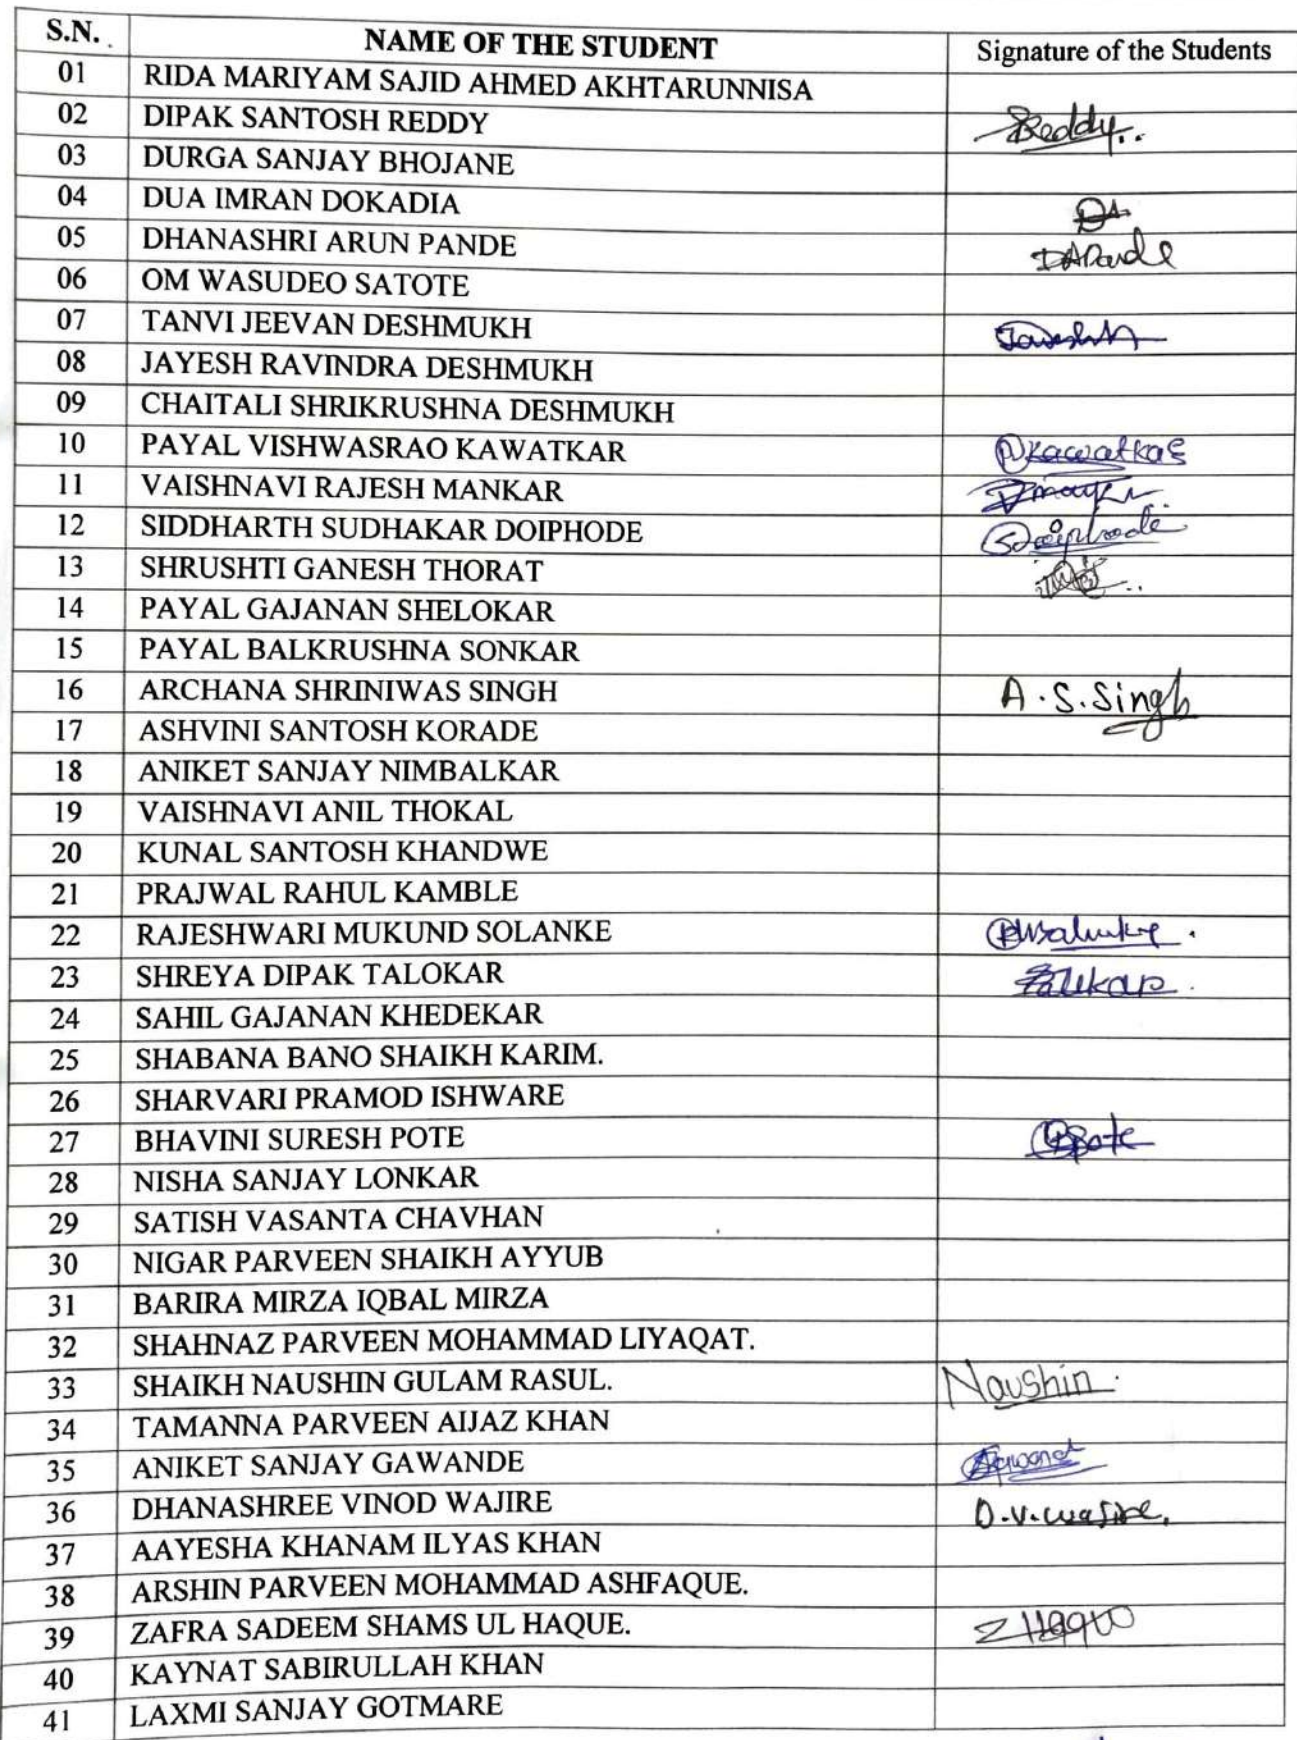 S.N. NAME OF THE STUDENT Signature of the Students
01 RIDA MARIYAM SAJID AHMED AKHTARUNNISA
02 DIPAK SANTOSH REDDY Reddy..
03 DURGA SANJAY BHOJANE
04 DUA IMRAN DOKADIA
05 DHANASHRI ARUN PANDE DAPande
06 OM WASUDEO SATOTE
07 TANVI JEEVAN DESHMUKH
08 JAYESH RAVINDRA DESHMUKH
09 CHAITALI SHRIKRUSHNA DESHMUKH
10 PAYAL VISHWASRAO KAWATKAR Pkawatkar
11 VAISHNAVI RAJESH MANKAR
12 SIDDHARTH SUDHAKAR DOIPHODE SDoiphode
13 SHRUSHTI GANESH THORAT
14 PAYAL GAJANAN SHELOKAR
15 PAYAL BALKRUSHNA SONKAR
16 ARCHANA SHRINIWAS SINGH A.S.Singh
17 ASHVINI SANTOSH KORADE
18 ANIKET SANJAY NIMBALKAR
19 VAISHNAVI ANIL THOKAL
20 KUNAL SANTOSH KHANDWE
21 PRAJWAL RAHUL KAMBLE
22 RAJESHWARI MUKUND SOLANKE
23 SHREYA DIPAK TALOKAR
24 SAHIL GAJANAN KHEDEKAR
25 SHABANA BANO SHAIKH KARIM.
26 SHARVARI PRAMOD ISHWARE
27 BHAVINI SURESH POTE BPote
28 NISHA SANJAY LONKAR
29 SATISH VASANTA CHAVHAN
30 NIGAR PARVEEN SHAIKH AYYUB
31 BARIRA MIRZA IQBAL MIRZA
32 SHAHNAZ PARVEEN MOHAMMAD LIYAQAT.
33 SHAIKH NAUSHIN GULAM RASUL. Naushin.
34 TAMANNA PARVEEN AIJAZ KHAN
35 ANIKET SANJAY GAWANDE
36 DHANASHREE VINOD WAJIRE D.V.Wajire.
37 AAYESHA KHANAM ILYAS KHAN
38 ARSHIN PARVEEN MOHAMMAD ASHFAQUE.
39 ZAFRA SADEEM SHAMS UL HAQUE.
40 KAYNAT SABIRULLAH KHAN
41 LAXMI SANJAY GOTMARE